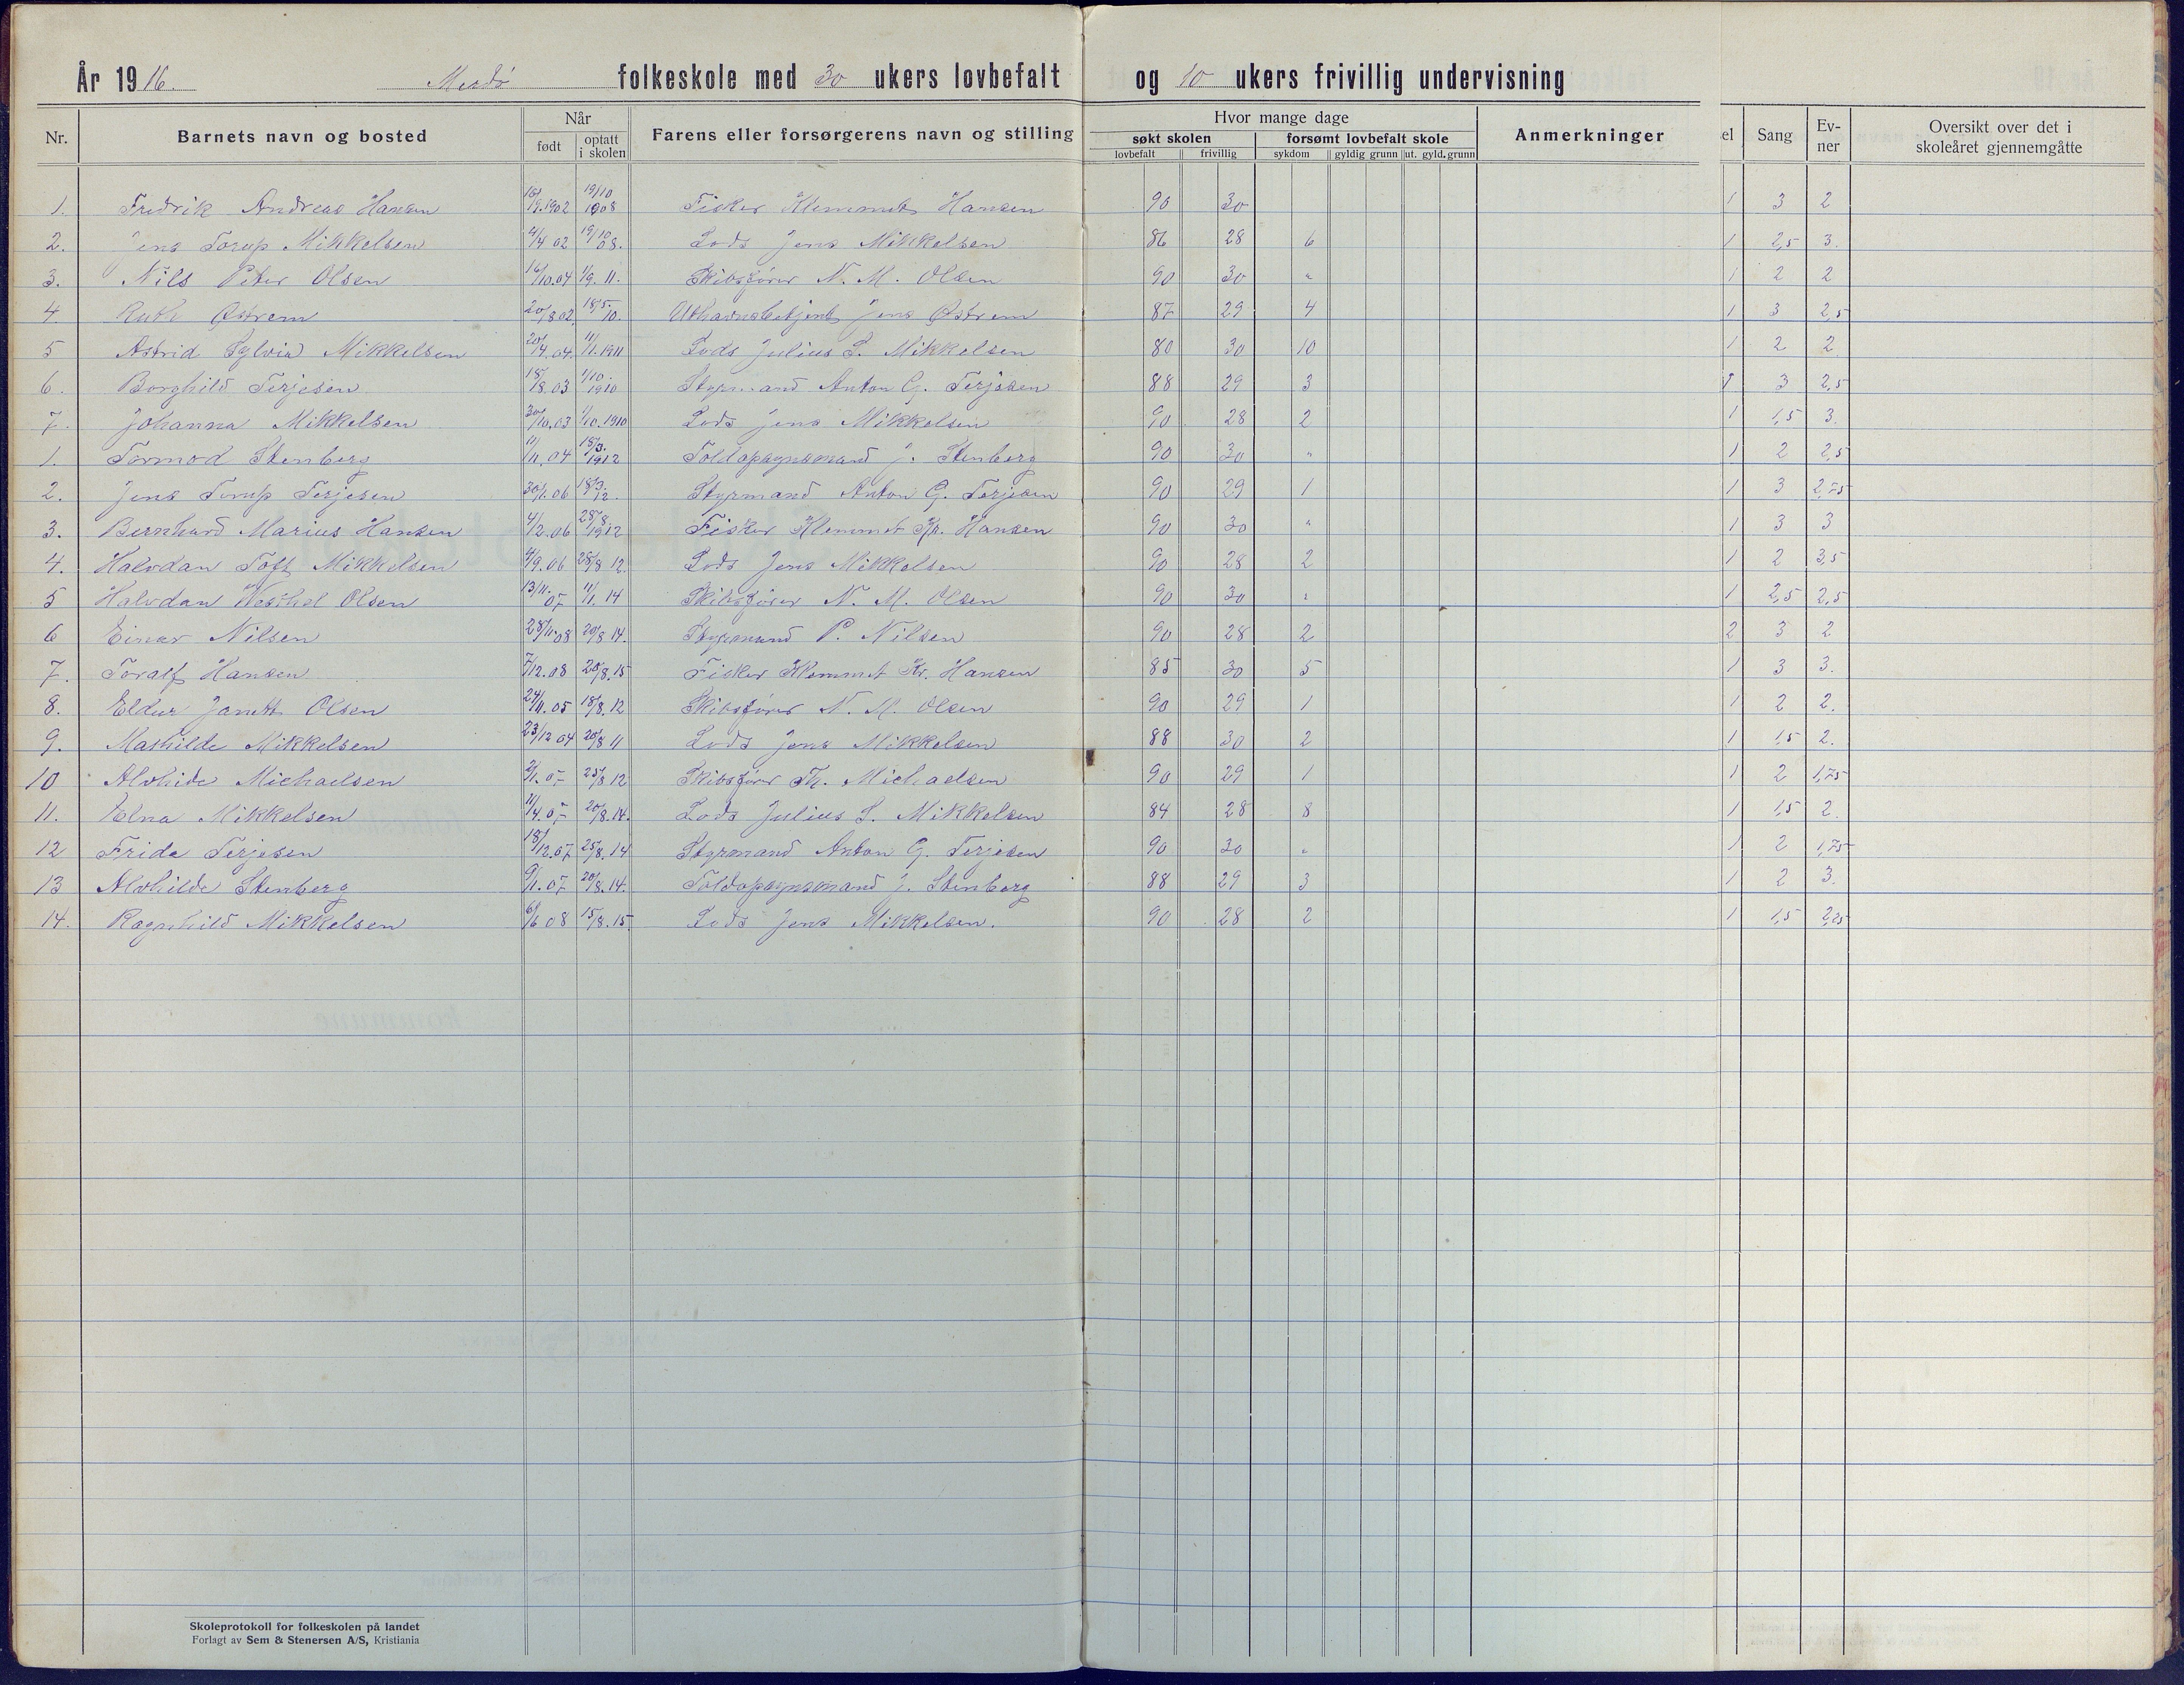 År 1916. Merdø folkeskole med 30 ukers lovbefalt og 10 ukers frivillig undervisning
Nr. Barnets navn og bosted Når født optatt i skolen Farens eller forsørgerens navn og stilling Hvor mange dage søkt skolen lovbefalt frivillig forsømt lovbefalt skole sykdom gyldig grunn ut. gyld. grunn Anmerkninger el Sang Ev-ner Oversikt over det i skoleåret gjennemgåtte
1. Fredrik Andreas Hansen 16/9.1902 19/10 1908 Fisker Klemmet Hansen 90 30 1 3 2
2. Jens Torup Mikkelsen 4/4 02 19/10 08. Lods Jens Mikkelsen 86 28 6 1 2,5 3.
3. Nils Peter Olsen 16/10.04 1/9. 11. Skibsfører N. M. Olsen 90 30 " 1 2 2
4. Ruth Østrem 20/8 02. 18/5. 10. Uthavnsbetjent Jens Østrem 87 29 4 1 3 2,5
5 Astrid Sylvia Mikkelsen 20/4. 04. 11/1. 1911 Lods Julius S. Mikkelsen 80 30 10 1 2 2
6. Borghild Terjesen 18/8 03 1/10. 1910 Styrmand Anton G. Terjesen 88 29 3 1 3 2,5
7. Johanna Mikkelsen 30/10.03 1/10.1910 Lods Jens Mikkelsen 90 28 2 1 1,5 3.
1. Tormod Stenberg 11/11. 04 18/3. 1912 Toldopsynsmand J. Stenberg 90 30 " 1 2 2,5
2. Jens Torup Terjesen 30/1. 06 18/3. 12. Styrmand Anton G. Terjesen 90 29 1 1 3 2,75
3. Bernhard Marius Hansen 4/2.06 28/8 1912 Fisker Klemmet Kr. Hansen 90 30 " 1 3 3
4. Halvdan Toft Mikkelsen 4/9.06 28/8 12. Lods Jens Mikkelsen 90 28 2 1 2 3,5
5 Halvdan Olsen 13/11. 07 11/1. 14 Skibsfører N. M. Olsen 90 30 " 1 2,5 2,5
6 Einar Nilsen 28/11.08 20/8 14. Styrmand P. Nilsen 90 28 2 2 3 2
7. Toralf Hansen 7/12.08 20/8.15 Fisker Klemmet Kr. Hansen 85 30 5 1 3 3.
8. Eldur Janett Olsen 24/11.05 18/8. 12 Skibsfører N. M. Olsen 90 29 1 1 2 2.
9. Mathilde Mikkelsen 23/12 04 20/8 11 Lods Jens Mikkelsen 88 30 2 1 1,5 2.
10 Alvhide Michaelsen 25/8 12 Skibsfører Th. Michaelsen 90 29 1 1 2 1,75
11. Elna Mikkelsen 20/8.14. Lods Julius S. Mikkelsen 84 28 8 1 1,5 2.
12 Frida Terjesen 18/12.07 25/8. 14 Styrmand Anton G. Terjesen 90 30 " 1 2 1,75
13 Alvhilde Stenberg 9/1.07 20/8.14. Toldopsynsmand J. Stenberg 88 29 3 1 2 3.
14. Ragnhild Mikkelsen 6/6 08 15/8.15. Lods Jens Mikkelsen. 90 28 2 1 1,5 2,25
Skoleprotokoll for folkeskolen på landet
Forlagt av Sem & Stenersen A/S, Kristiania